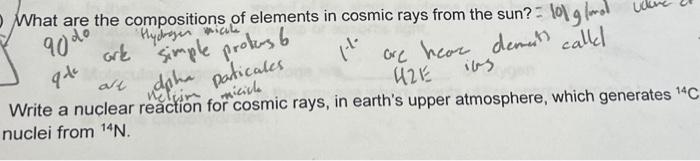 ) What are the compositions of elements in cosmic rays from the sun? = 101 g/mol
Hydrogen
90% are simple protons 6 1% are heav elements called
9% are alpha paticales HZE ions
Write a nuclear reaction for cosmic rays, in earth's upper atmosphere, which generates ¹⁴C
nuclei from ¹⁴N.